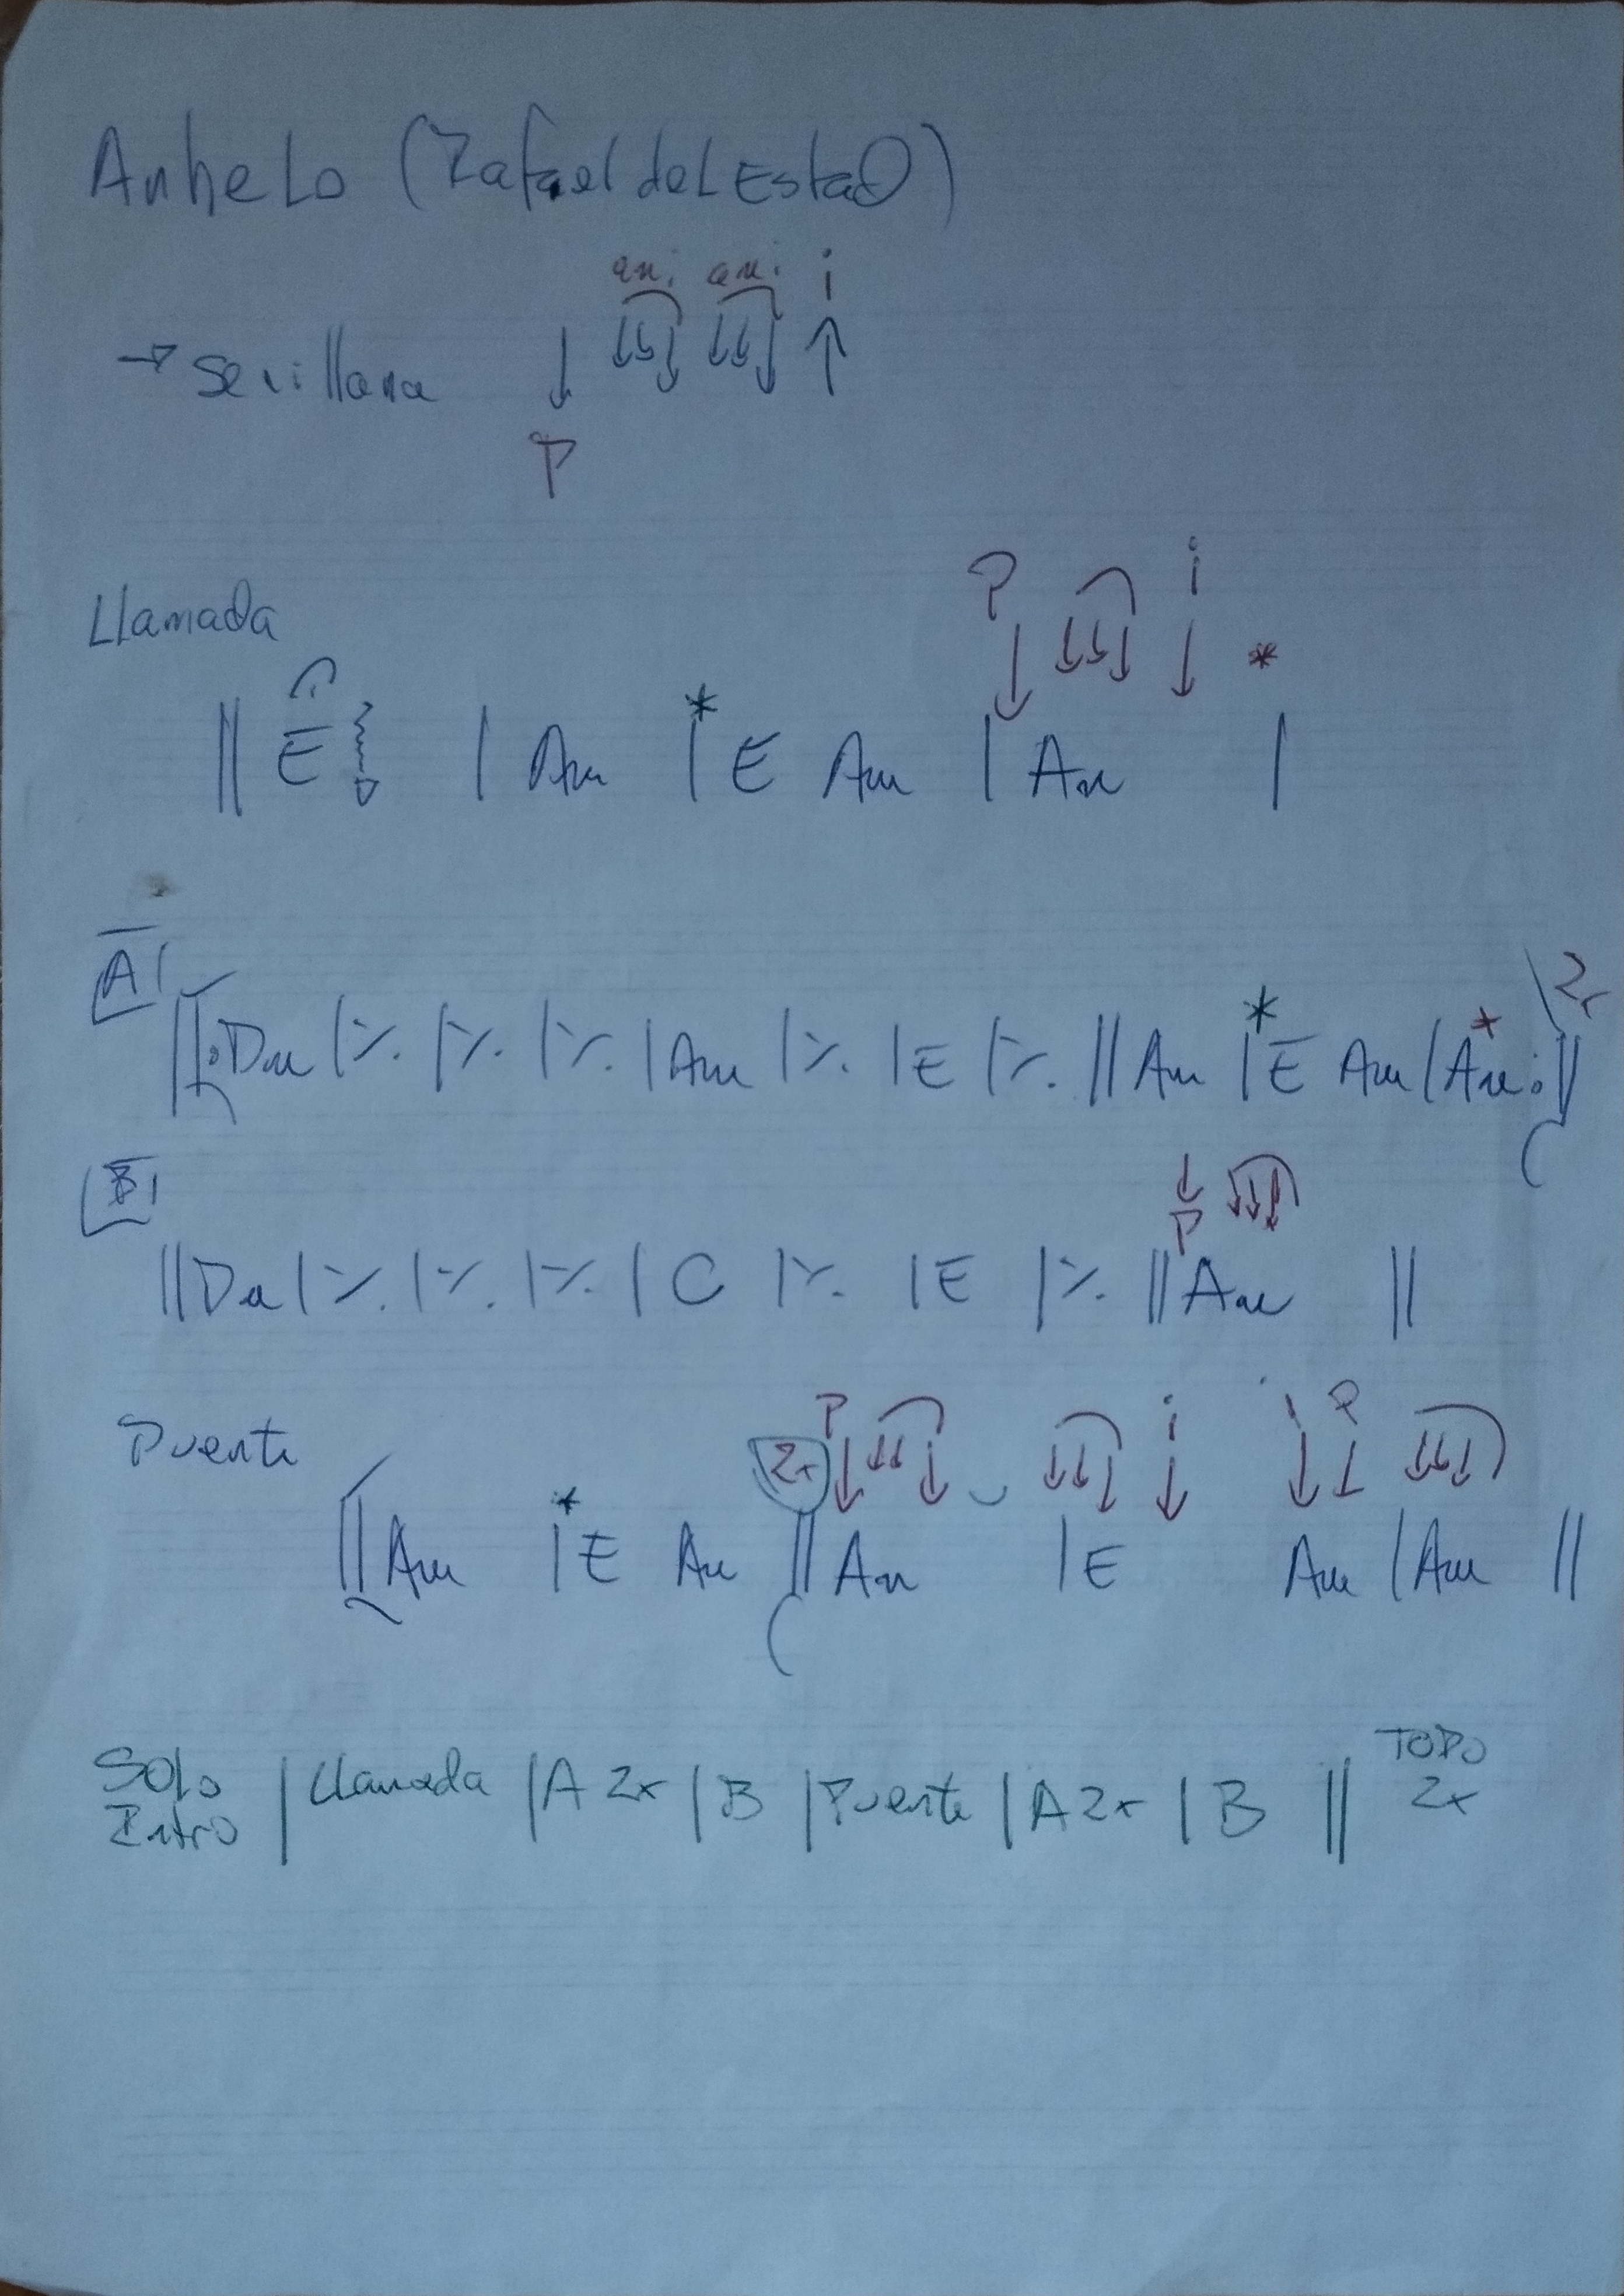 Anhelo (Rafael del Estad)
ami ami i
→ Sevillana ↓ ↓↓↓ ↓↓↓ ↑
P
P i
Llamada ↓ ↓↓↓ ↓ *
|| E | Am |* E Am | Am |
A
||: Dm | ٪ | ٪ | ٪ | Am | ٪ | E | ٪ || Am |* E Am | Am* :|| 2x
B
↓ ↓↓↓
P
|| Dm | ٪ | ٪ | ٪ | C | ٪ | E | ٪ || Am ||
P i i P
Puente 2x ↓ ↓↓ ↓ ↓↓↓ ↓ ↓ ↓ ↓↓↓
|| Am |* E Am || Am | E Am | Am ||
Solo Intro | Llamada | A 2x | B | Puente | A 2x | B || TODO 2x